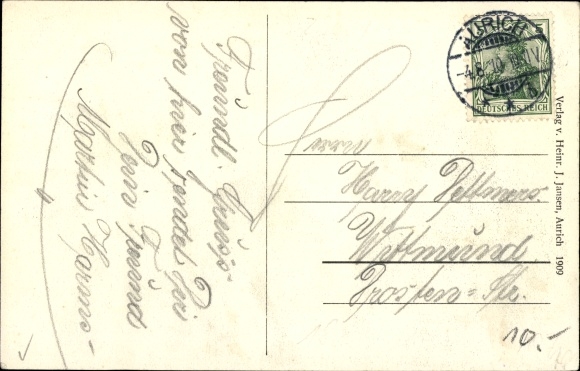 Freundl. Gruss
von hier sendet Dir
Dein Freund
Martin Harms
AURICH
-4.8.10.
5
DEUTSCHES REICH
Herrn
Harry
Wittmund
Str.
Verlag v. Heinr. J. Jansen, Aurich 1909
10.-